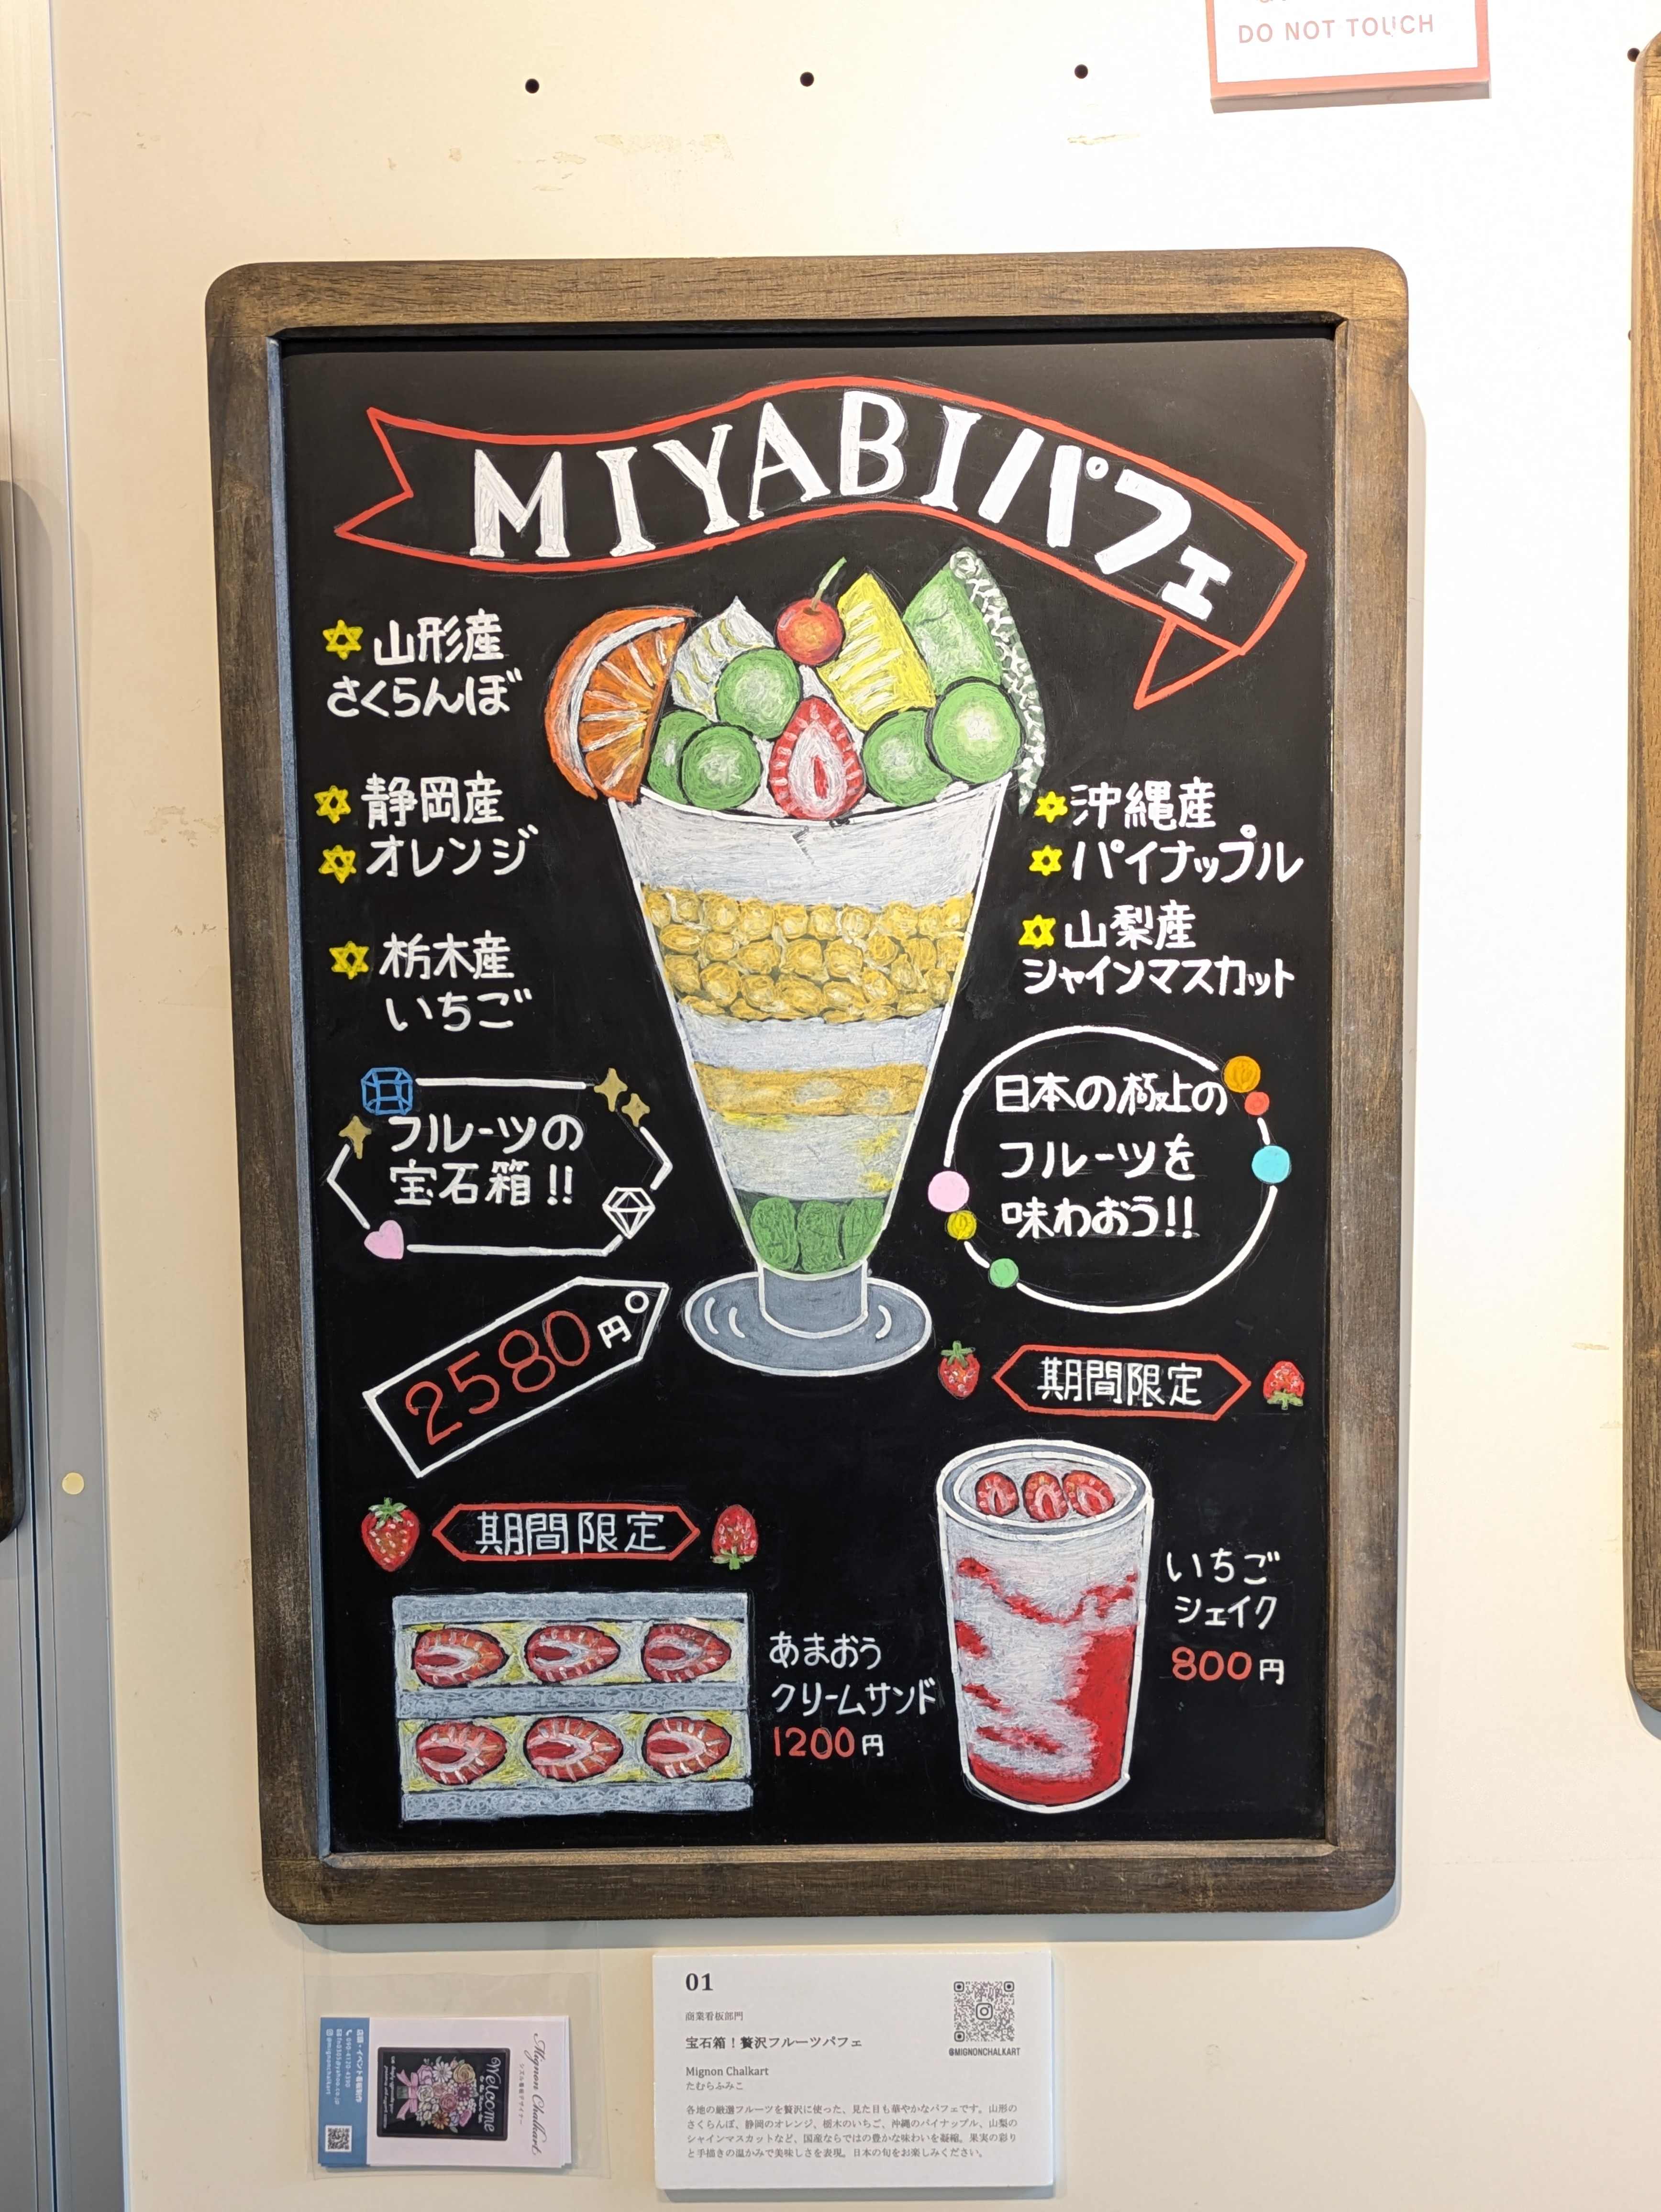 DO NOT TOUCH
MIYABIパフェ
山形産
さくらんぼ
静岡産
オレンジ
栃木産
いちご
沖縄産
パイナップル
山梨産
シャインマスカット
フルーツの
宝石箱!!
日本の極上の
フルーツを
味わおう!!
2580円
期間限定
いちご
シェイク
800円
期間限定
あまおう
クリームサンド
1200円
01
商業看板部門
宝石箱！贅沢フルーツパフェ
Mignon Chalkart
たむらふみこ
各地の厳選フルーツを贅沢に使った、見た目も華やかなパフェです。山形の
さくらんぼ、静岡のオレンジ、栃木のいちご、沖縄のパイナップル、山梨の
シャインマスカットなど、国産ならではの豊かな味わいを凝縮。果実の彩り
と手描きの温かみで美味しさを表現。日本の旬をお楽しみください。
@MIGNONCHALKART
Mignon Chalkart
Welcome
店舗・イベント看板制作
@mignonchalkart